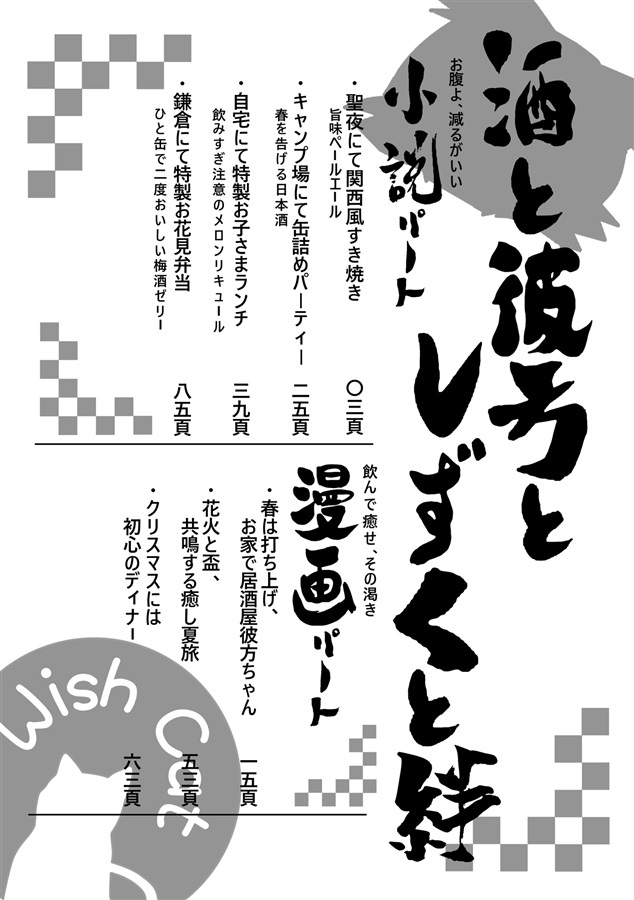 酒と彼方と
しずくと絆
お腹よ、減るがいい
小説パート
・聖夜にて関西風すき焼き
旨味ペールエール
〇三頁
・キャンプ場にて缶詰めパーティー
春を告げる日本酒
二五頁
・自宅にて特製お子さまランチ
飲みすぎ注意のメロンリキュール
三九頁
・鎌倉にて特製お花見弁当
ひと缶で二度おいしい梅酒ゼリー
八五頁
飲んで癒せ、その渇き
漫画パート
・春は打ち上げ、
お家で居酒屋彼方ちゃん
一五頁
・花火と盃、
共鳴する癒し夏旅
五三頁
・クリスマスには
初心のディナー
六三頁
Wish Cat